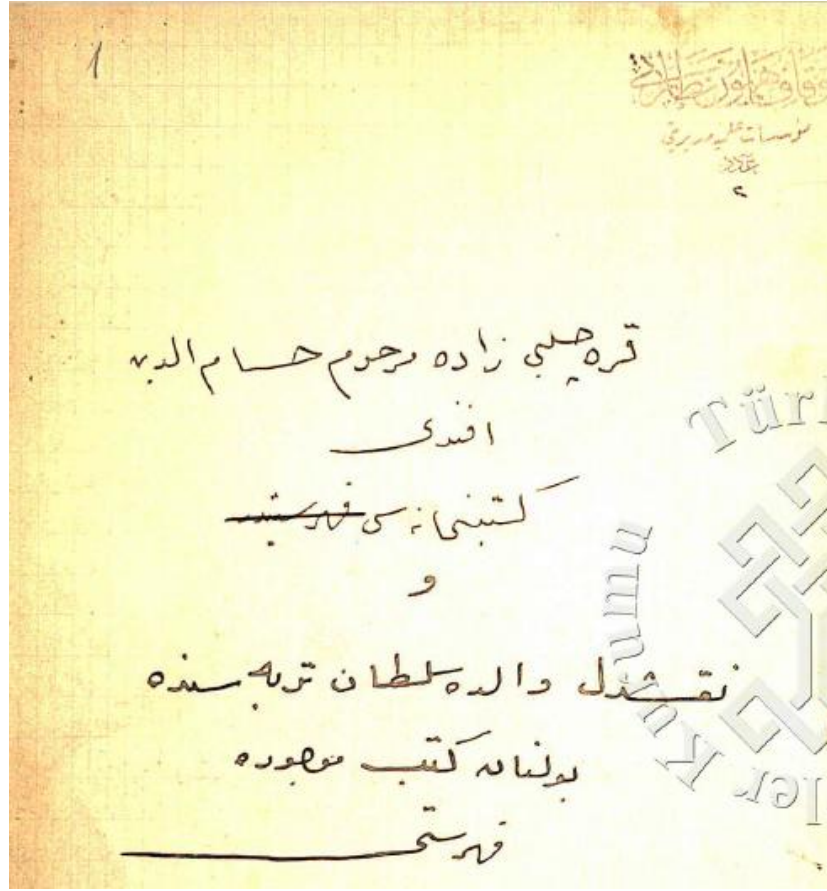 ١
اوقاف همایون نظارتی
مؤسسات علمیه مدیریتی
عدد
٢
قره چلبی زاده مرحوم حسام الدین
افندی
كتبخانه سی فهرستیدر
و
نقشدل والده سلطان تربه سنده
بولنان كتب موجوده
فهرستی
Türk
ler Kurumu